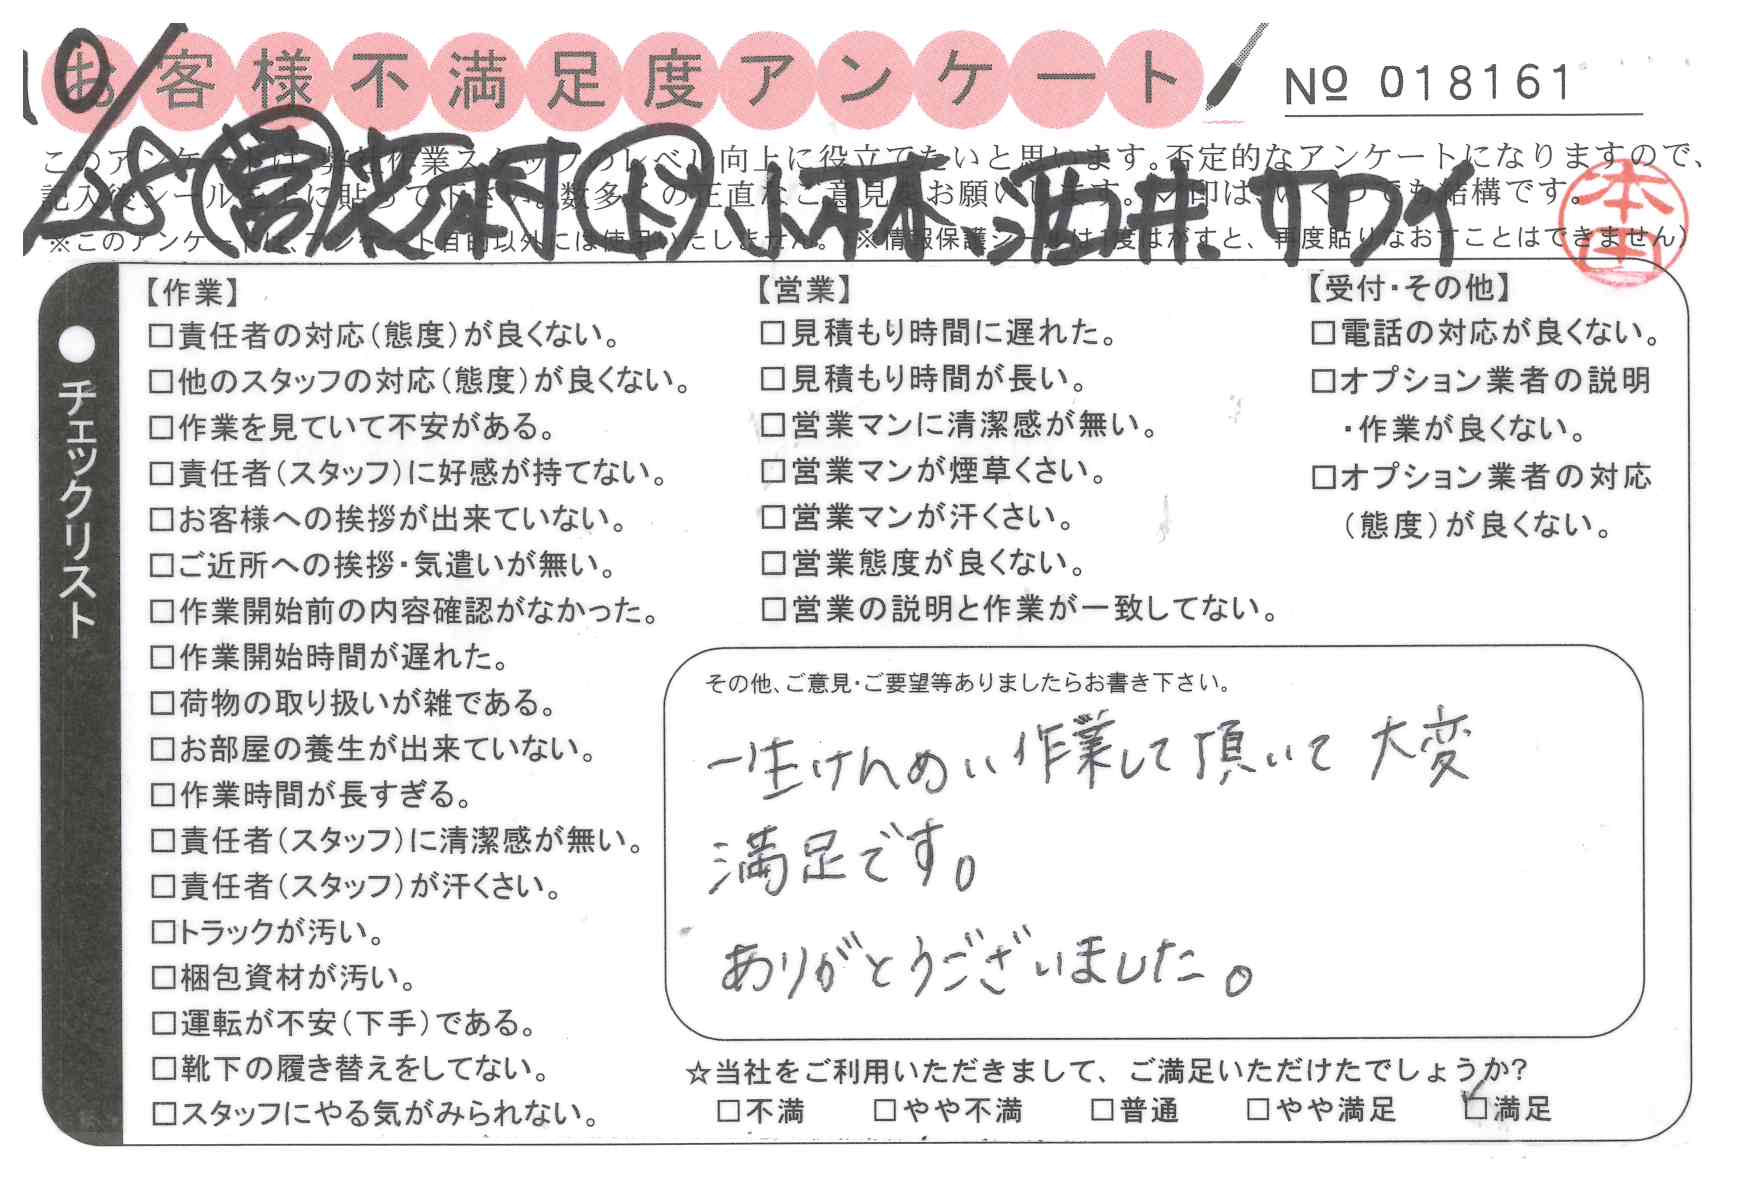 お客様不満足度アンケート
№ 018161
10/28 営 志村 ド 小林、酒井、サワイ
本田
このアンケートは、弊社作業スタッフのレベル向上に役立てたいと思います。否定的なアンケートになりますので、
記入後シールを上に貼って下さい。数多くの正直なご意見をお願いします。レ印は、いくつでも結構です。
※このアンケートは、アンケート目的以外には使用いたしません。（※情報保護シールは1度はがすと、再度貼りなおすことはできません）
●チェックリスト
【作業】
□責任者の対応（態度）が良くない。
□他のスタッフの対応（態度）が良くない。
□作業を見ていて不安がある。
□責任者（スタッフ）に好感が持てない。
□お客様への挨拶が出来ていない。
□ご近所への挨拶・気遣いが無い。
□作業開始前の内容確認がなかった。
□作業開始時間が遅れた。
□荷物の取り扱いが雑である。
□お部屋の養生が出来ていない。
□作業時間が長すぎる。
□責任者（スタッフ）に清潔感が無い。
□責任者（スタッフ）が汗くさい。
□トラックが汚い。
□梱包資材が汚い。
□運転が不安（下手）である。
□靴下の履き替えをしてない。
□スタッフにやる気がみられない。
【営業】
□見積もり時間に遅れた。
□見積もり時間が長い。
□営業マンに清潔感が無い。
□営業マンが煙草くさい。
□営業マンが汗くさい。
□営業態度が良くない。
□営業の説明と作業が一致してない。
【受付・その他】
□電話の対応が良くない。
□オプション業者の説明
・作業が良くない。
□オプション業者の対応
（態度）が良くない。
その他、ご意見・ご要望等ありましたらお書き下さい。
一生けんめい作業して頂いて大変
満足です。
ありがとうございました。
☆当社をご利用いただきまして、ご満足いただけたでしょうか?
□不満 □やや不満 □普通 □やや満足 ☑満足